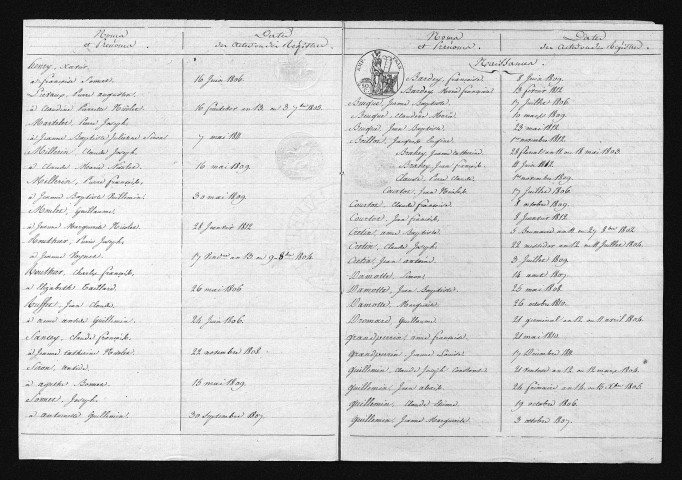 Noms
et Prénoms
Dates
des actes ou des Registres
Henry, Xavier
à françoise Sornet
16 Juin 1806.
Pierre augustin
à Claudine Pierrette Nicolet
16 fructidor an 13 ou 3 7bre 1805.
Pierre Joseph
à Jeanne Baptiste Julienne Simon
7 mai 1811.
Claude Joseph
à Claude Marie Nicolet
16 mai 1809.
Pierre françois
à Jeanne Baptiste Guillemin
30 mai 1809.
Guillaume
à Jeanne Marguerite Nicolet
28 Janvier 1812
Pierre Joseph
à Jeanne
17 Vend.re an 13 ou 9 8bre 1804.
Charles françois
à Elizabeth Taillard
26 mai 1806
Ruffet, Jean Claude
à anne Guillemin
24 Juin 1806.
Sancey, Claude françois
à Jeanne Catherine
22 novembre 1808.
Simon,
à agathe Bonnet
15 mai 1809.
Joseph
à antoinette Guillemin.
30 Septembre 1807.
Noms
et Prénoms
Dates
des actes ou des Registres
Naissances
Bardey, françoise
8 Juin 1809.
Bardey, Marie françoise
13 fevrier 1812
Buque, Jeanne Baptiste
17 Juillet 1806.
Buque, Claudine Marie
10 mars 1809.
Buque, Jean Baptiste
23 mai 1812.
Jacques Eugène
1er novembre 1812.
Brahey, Jeanne Catherine
28 floréal an 11 ou 18 mai 1803
Brahey, Jean françois
11 Juin 1812.
Claude, Pierre Claude
1er novembre 1809.
Courtot, Jean Nicolas
17 Juillet 1806
Courtot, Claude françois
8 octobre 1809.
Courtot, Jean françois
8 Janvier 1812.
Crotin, anne Baptiste
Crotin, Claude Joseph
22 messidor an 12 ou 11 Juillet 1804.
Crotin, Jean antoine
3 Juillet 1809.
Damotte, Simon
14 aout 1807.
Damotte, Jean Baptiste
25 mai 1808.
Damotte, Marguerite
26 octobre 1810.
Dromard, Guillaume
21 germinal an 12 ou 11 avril 1804.
Grandperrin, anne françoise
21 mai 1810.
Grandperrin, Jeanne Louise
17 Decembre 1811
Guillemin, Claude Joseph Constant
21 ventose an 12 ou 12 mars 1804
Guillemin, Jean alexis
24 frimaire an 14 ou 15 Xbre 1805
Guillemin, Claude Etienne
19 octobre 1806.
Guillemin, Jeanne Marguerite
3 octobre 1807.